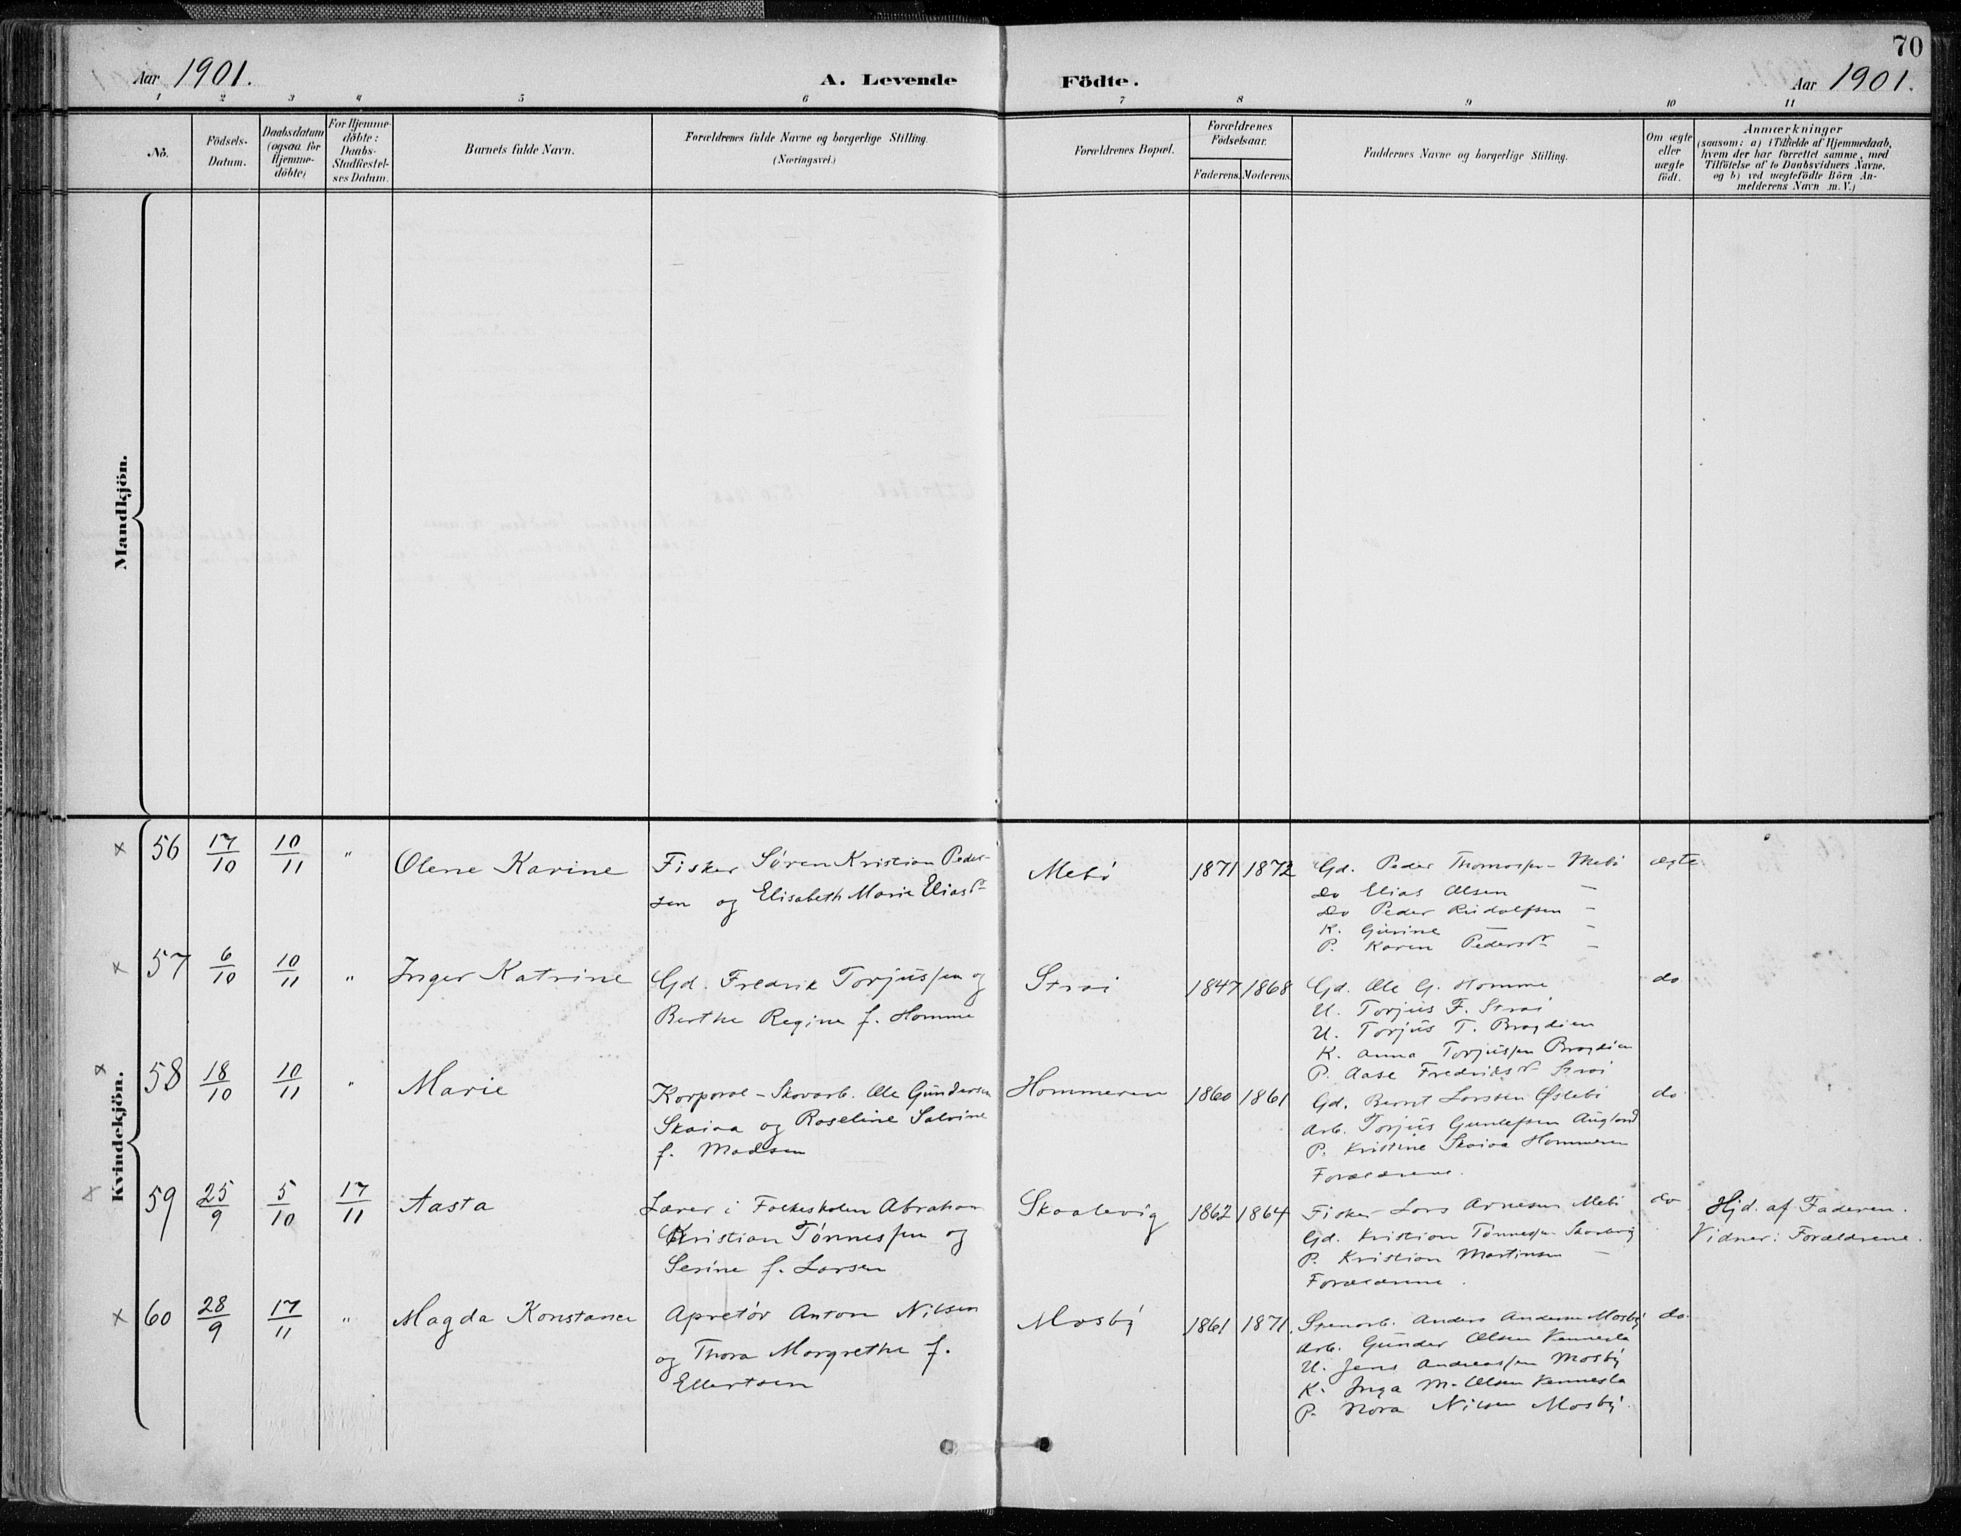 70
Aar 1901. A. Levende Födte. Aar 1901.
1 2 3 4 5 6 7 8 9 10 11
No.
Födsels-
Datum.
Daabsdatum
(ogsaa for
Hjemme-
döbte)
For Hjemme-
döbte:
Daabs-
Stadfæstel-
ses Datum.
Barnets fulde Navn.
Forældrenes fulde Navne og borgerlige Stilling
(Næringsvei.)
Forældrenes Bopæl.
Forældrenes
Födselsaar.
Faderens. Moderens.
Faddernes Navne og borgerlige Stilling.
Om ægte
eller
uægte
födt.
Anmærkninger
(saasom: a) i Tilfælde af Hjemmedaab,
hvem der har forrettet samme, med
Tilföielse af to Daabsvidners Navne.
og b) ved uægtefödte Börn An-
melderens Navn m. V.)
Mandkjön.
Kvindekjön.
× 56 17/10 10/11 " Olene Karine
Fisker Søren Kristian Peder-
sen og Elisabeth Marie Eliasdr
Mebø 1871 1872
Gd. Peder Thomassen Mebø
do Elias Olsen —
do Peder Rudolfsen —
K. Gurine —
P. Karen Pedersdr —
ægte
× 57 6/10 10/11 " Inger Katrine
Gd. Fredrik Torjussen og
Berthe Regine f. Homme
Strai 1847 1868
Gd. Ole G. Homme
U. Torjus F. Strai
U. Torjus T. Brogdien
K. Anna Torjussen Brogdien
P. Aase Fredriksdr Strai
do
× 58 18/10 10/11 " Marie
Korporal - Skovarb. Ole Gundersen
Skaiaa og Roseline Salvine
f. Madsen
Hommeren 1860 1861
Gd. Bernt Larssen Øslebø
Arb. Torjus Gunlefsen Augland
P. Kristine Skaiaa Hommeren
Forældrene.
do
× 59 25/9 5/10 17/11 Aasta
Lærer i Folkeskolen Abraham
Kristian Tønnessen og
Serine f. Larsen
Skaalevig 1862 1864
Fisker Lars Arnesen Mebø
Gd. Kristian Tønnessen Skaalevig
P. Kristian Martinsen —
Forældrene.
do
Hjd. af Faderen.
Vidner: Forældrene.
× 60 28/9 17/11 " Magda Konstance
Apretør Anton Nilsen
og Thora Margrethe f.
Ellertsen
Mosby 1861 1871.
Stenarb. Anders Andersen Mosby
Arb. Gunder Olsen Vennesla
U. Jens Andreassen Mosby
K. Inga M. Olsen Vennesla
P. Nora Nilsen Mosby.
do.